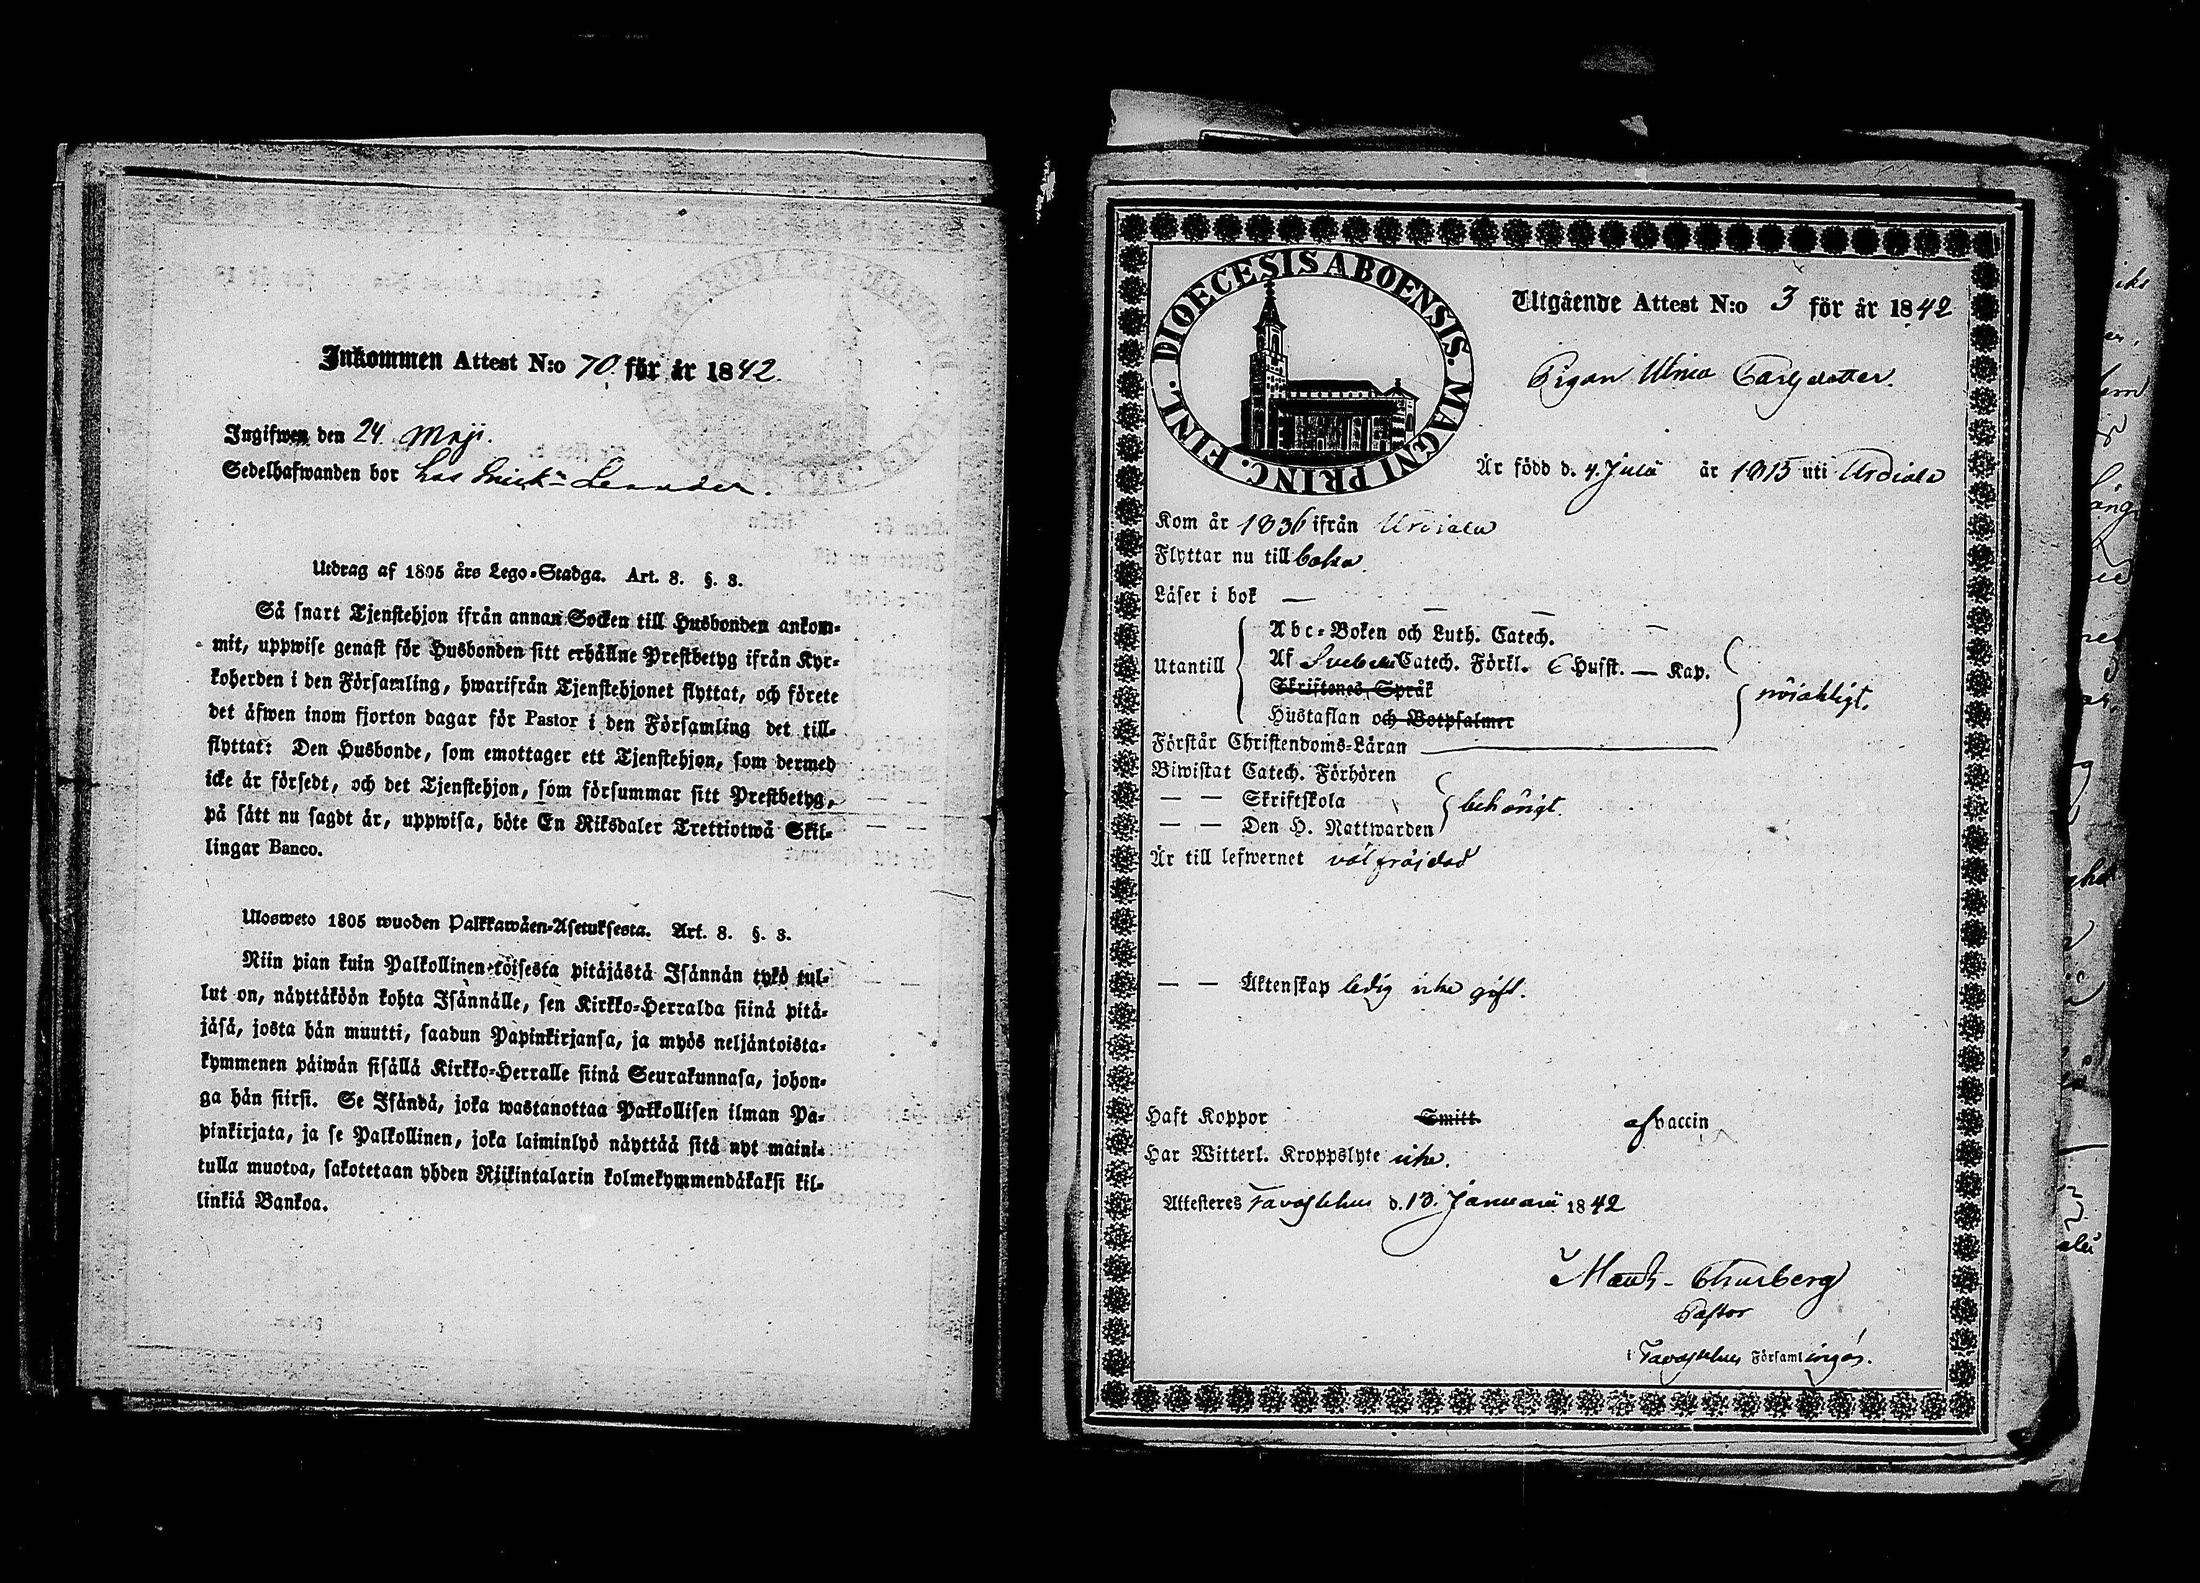 Inkommen Attest N:o 70 för år 1842.
Ingifwen den 24. Maji.
Sedelhafwanden bor hos
Utdrag af 1805 års Lego-Stadga. Art. 8. §. 3.
Så snart Tjenstehjon ifrån annan Socken till Husbonden ankom-
mit, uppwise genast för Husbonden sitt erhållne Prestbetyg ifrån Kyr-
koherden i den Församling, hwarifrån Tjenstehjonet flyttat, och förete
det äfwen inom fjorton dagar för Pastor i den Församling det till-
flyttat: Den Husbonde, som emottager ett Tjenstehjon, som dermed
icke är försedt, och det Tjenstehjon, som försummar sitt Prestbetyg,
på sätt nu sagdt är, uppwisa, böte En Riksdaler Trettiotwå Skil-
lingar Banco.
Ulosweto 1805 wuoden Palkkawäen-Asetuksesta. Art. 8. §. 3.
Niin pian kuin Palkollinen toisesta pitäjästä Isännän tykö tul-
lut on, näyttäköön kohta Isännälle, sen Kirkko-Herralda siinä pitä-
jäsä, josta hän muutti, saadun Papinkirjansa, ja myös neljäntoista-
kymmenen päiwän sisällä Kirkko-Herralle siinä Seurakunnasa, johon-
ga hän siirsi. Se Isändä, joka wastanottaa Palkollisen ilman Pa-
pinkirjata, ja se Palkollinen, joka laiminlyö näyttää sitä nyt maini-
tulla muotoa, sakotetaan yhden Riikintalarin kolmekymmendäkaksi kil-
linkiä Bankoa.
DIOECESIS ABOENSIS. MAGNI PRINC. FINL.
Utgående Attest N:o 3 för år 1842
Pigan Ulrica Carlsdotter.
Är född d. 4. Julii år 1815 uti Urdiala
Kom år 1836 ifrån Urdiala
Flyttar nu till
Läser i bok —
Abc-Boken och Luth. Catech. —
Utantill
Af Svebelii Catech. Förkl. Husst. — Kap.
Skriftenes Språk
Hustaflan och Botpsalmer
Förstår Christendoms-Läran
Biwistat Catech. Förhören
— — Skriftskola behörigt.
— — Den H. Nattwarden
Är till lefwernet välfräjdad
— — Äktenskap ledig icke gift.
Haft Koppor Smitt. af vaccin
Har Witterl. Kroppslyte icke.
Attesteres Tavastehus d. 13. Januarii 1842
Thurberg
Pastor
i Tavastehus Församlingar.